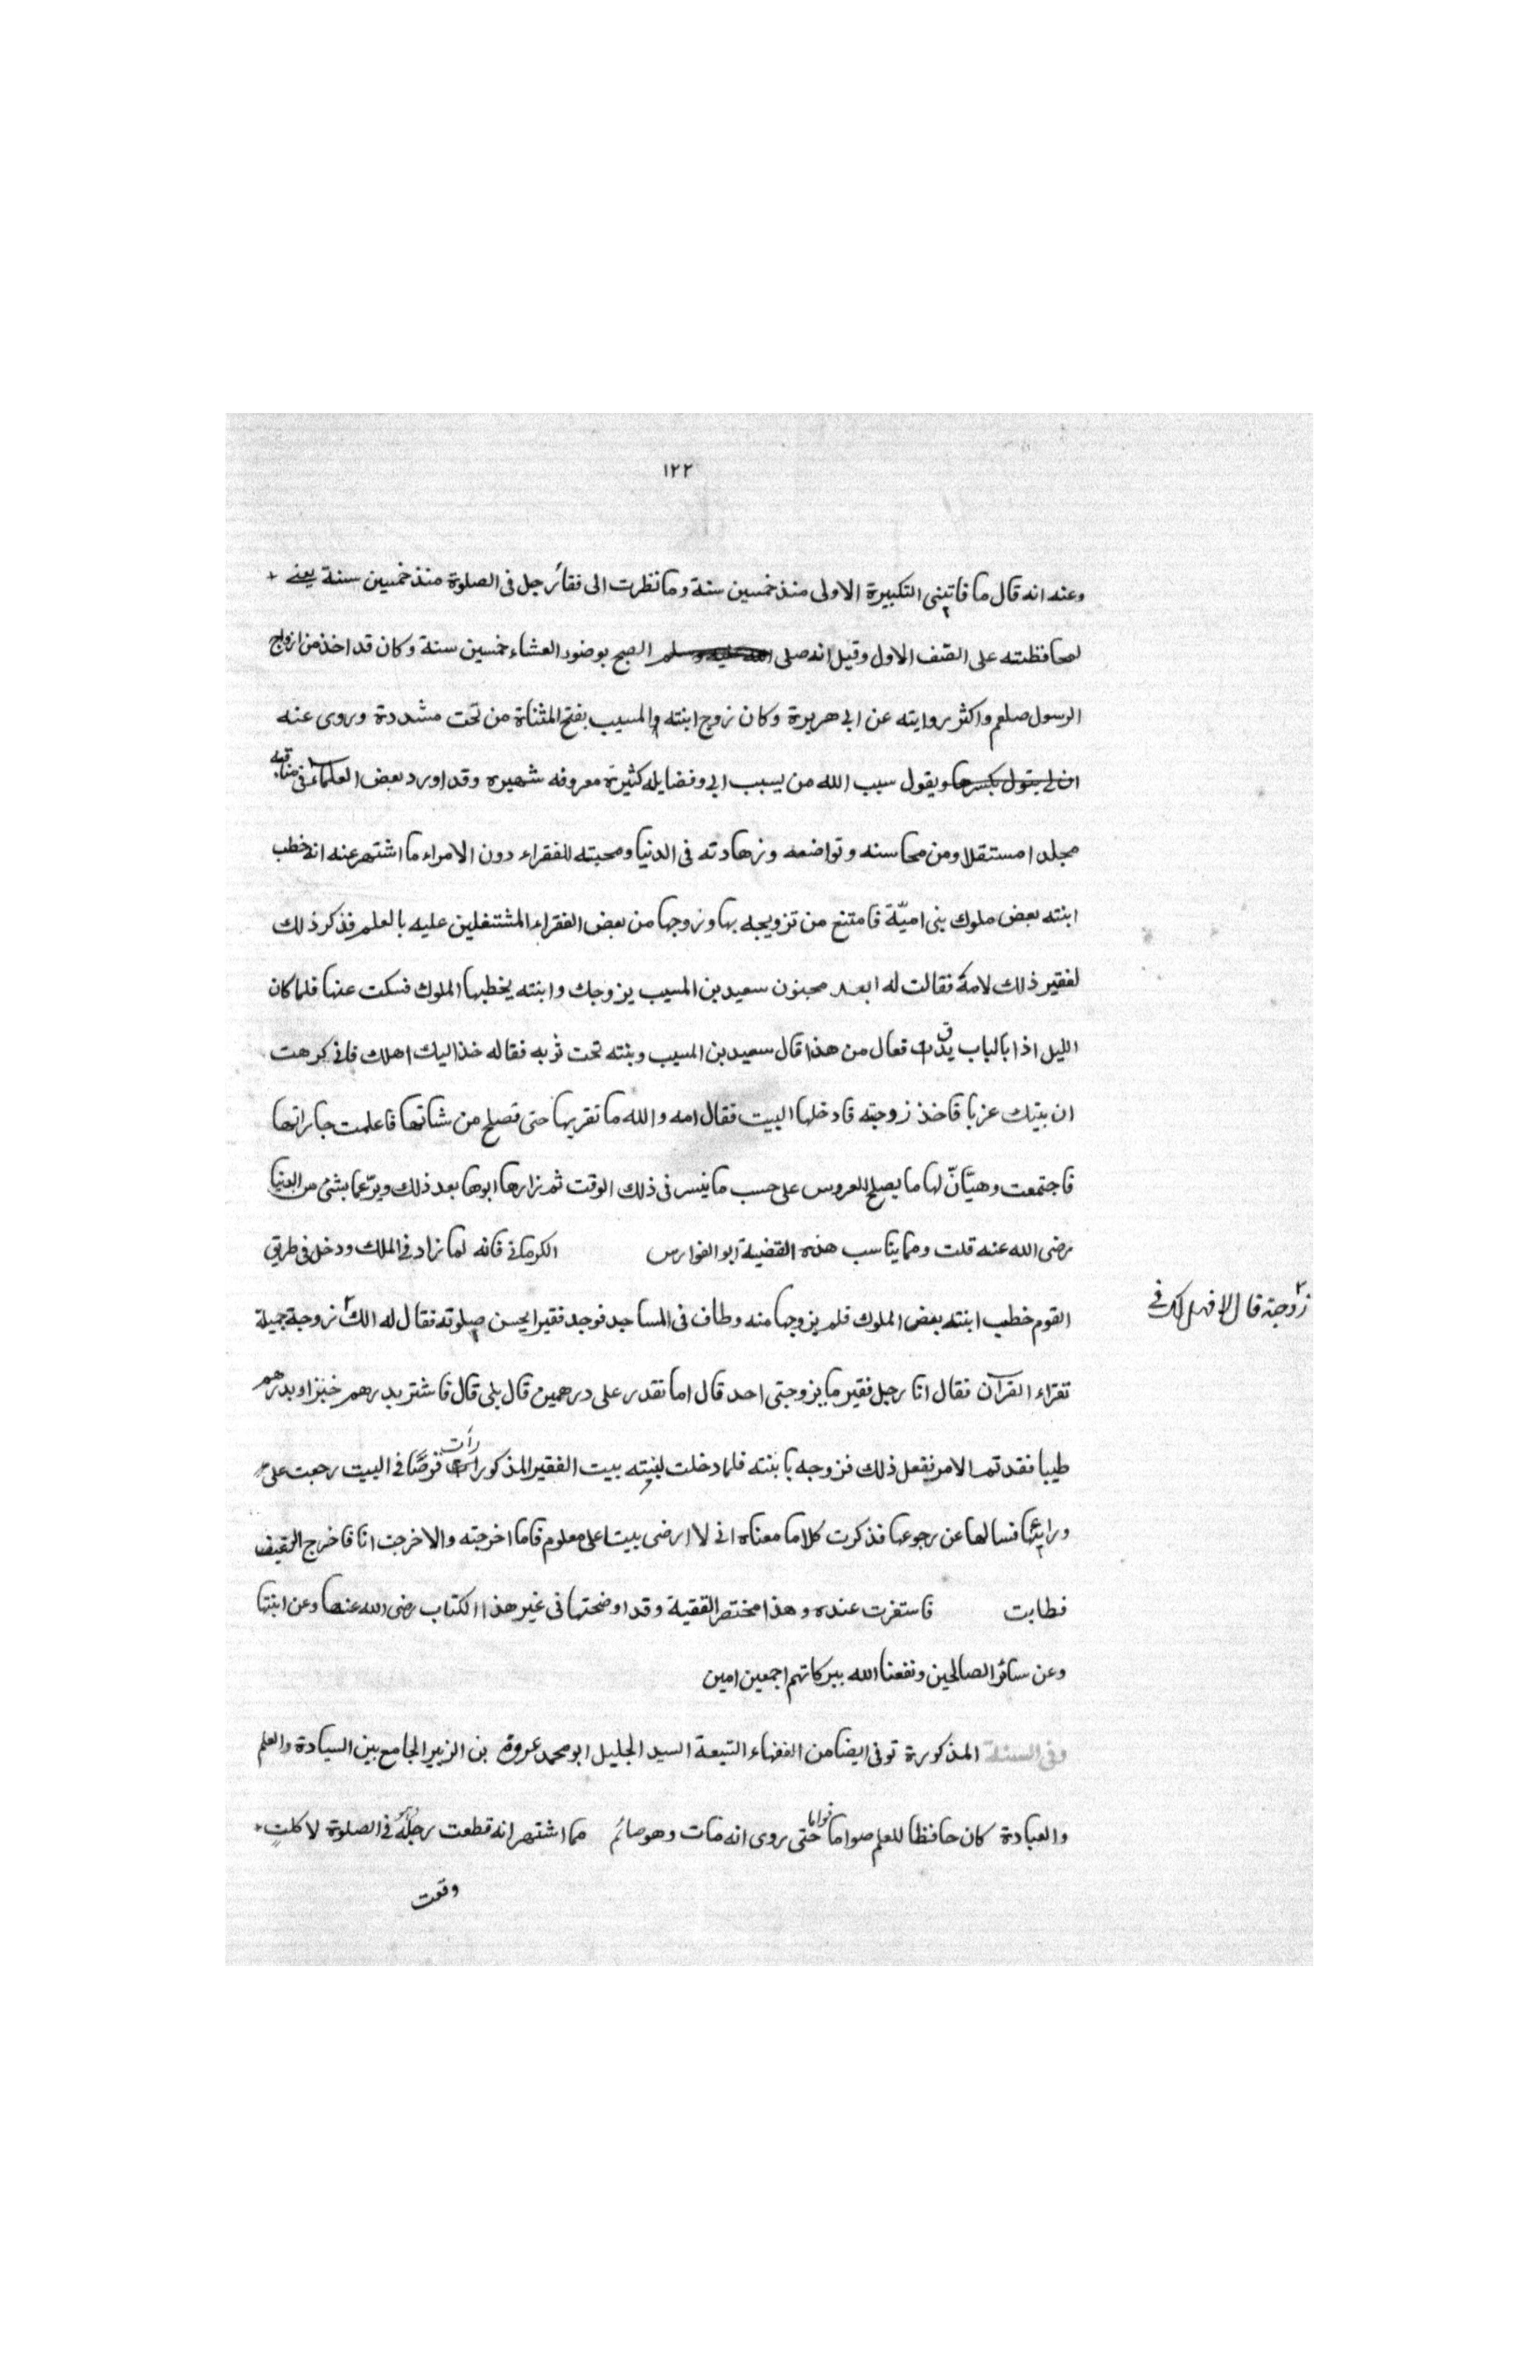 ١٢٢
وعنه انه قال ما فاتتنى التكبيرة الاولى منذ خمسين سنة وما نظرت الى قفا رجل فى الصلوة منذ خمسين سنة يعنى
لمحافظته على الصف الاول وقيل انه صلى الله عليه وسلم الصبح بوضوء العشاء خمسين سنة وكان قد اخذ من ازواج
الرسول صلعم واكثر روايته عن ابى هريرة وكان زوج ابنته والمسيب بفتح المثناة من تحت مشددة وروى عنه
انه يقول بكسرها ويقول سيب الله من يسيب ابى وفضايله كثيرة معروفه شهيره وقد اورد بعض العلماء فى مناقبه
مجلدا مستقلا ومن محاسنه وتواضعه وزهادته فى الدنيا ومحبته للفقراء دون الامراء ما اشتهر عنه انه خطب
ابنته بعض ملوك بنى اميّة فامتنع من تزويجه بها وزوجها من بعض الفقراء المشتغلين عليه بالعلم فذكر ذلك
لفقير ذلك لامه فقالت له ابعد مجنون سعيد بن المسيب يزوجك وابنته يخطبها الملوك فسكت عنها فلما كان
الليل اذا بالباب يدق فقال من هذا قال سعيد بن المسيب وبنته تحت ثوبه فقاله خذ اليك اهلك فانى كرهت
ان بيتك عزبا فاخذ زوجته فادخلها البيت فقال امه والله ما تقربها حتى تصلح من شانها فاعلمت جاراتها
فاجتمعت وهيّانّ لها ما يصلح للعروس على حسب ما تيسر فى ذلك الوقت ثم زارها ابوها بعد ذلك وبرّعما بشئ من الدنيا
رضى الله عنه قلت ومما يناسب هذه القضية ابو الفوارس الكرمانى فانه لما زاد فى الملك ودخل فى طريق
القوم خطب ابنته بعض الملوك فلم يزوجها منه وطاف فى المساجد فوجد فقيرا يحسن صلوته فقال له الك زوجة جميلة
زوجة قال لا فهل لك فى
تقراء القرآن فقال انا رجل فقير ما يزوجنى احد قال اما تقدر على درهمين قال بلى قال فاشتر بدرهم خبزا وبدرهم
طيبا فقد تم الامر ففعل ذلك فزوجه بابنته فلما دخلت ابنته بيت الفقير المذكور رأت قرصًا فى البيت رجعت على
ورائها فسالها عن رجوعها فذكرت كلاما معناه انى لا ارضى بيتا على معلوم فاما اخرجته والا خرجت انا فاخرج الرغيف
فطابت فاستقرت عنده وهذا مختصر القضية وقد اوضحتها فى غير هذا الكتاب رضى الله عنها وعن ابنتها
وعن سائر الصالحين ونفعنا الله ببركاتهم اجمعين امين
وفى السنة المذكورة توفى ايضا من الفقهاء السبعة السيد الجليل ابو محمد عروة بن الزبير الجامع بين السيادة والعلم
والعبادة كان حافظا للعلم صواما قواما حتى روى انه مات وهو صائم مما اشتهر انه قطعت رجله فى الصلوة لاكلة
وقعت